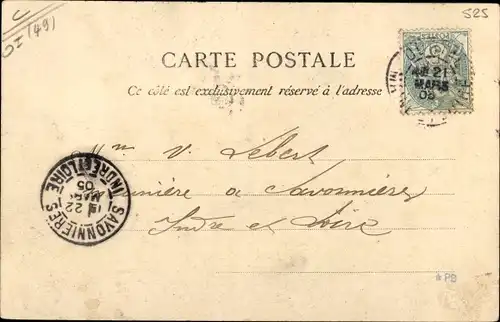 525
(49)
CARTE POSTALE
Ce côté est exclusivement réservé à l'adresse
21
MARS
05
V. Lebert
à Savonnières
Indre et Loire
SAVONNIERES
INDRE ET LOIRE
22
MARS
05
*PB